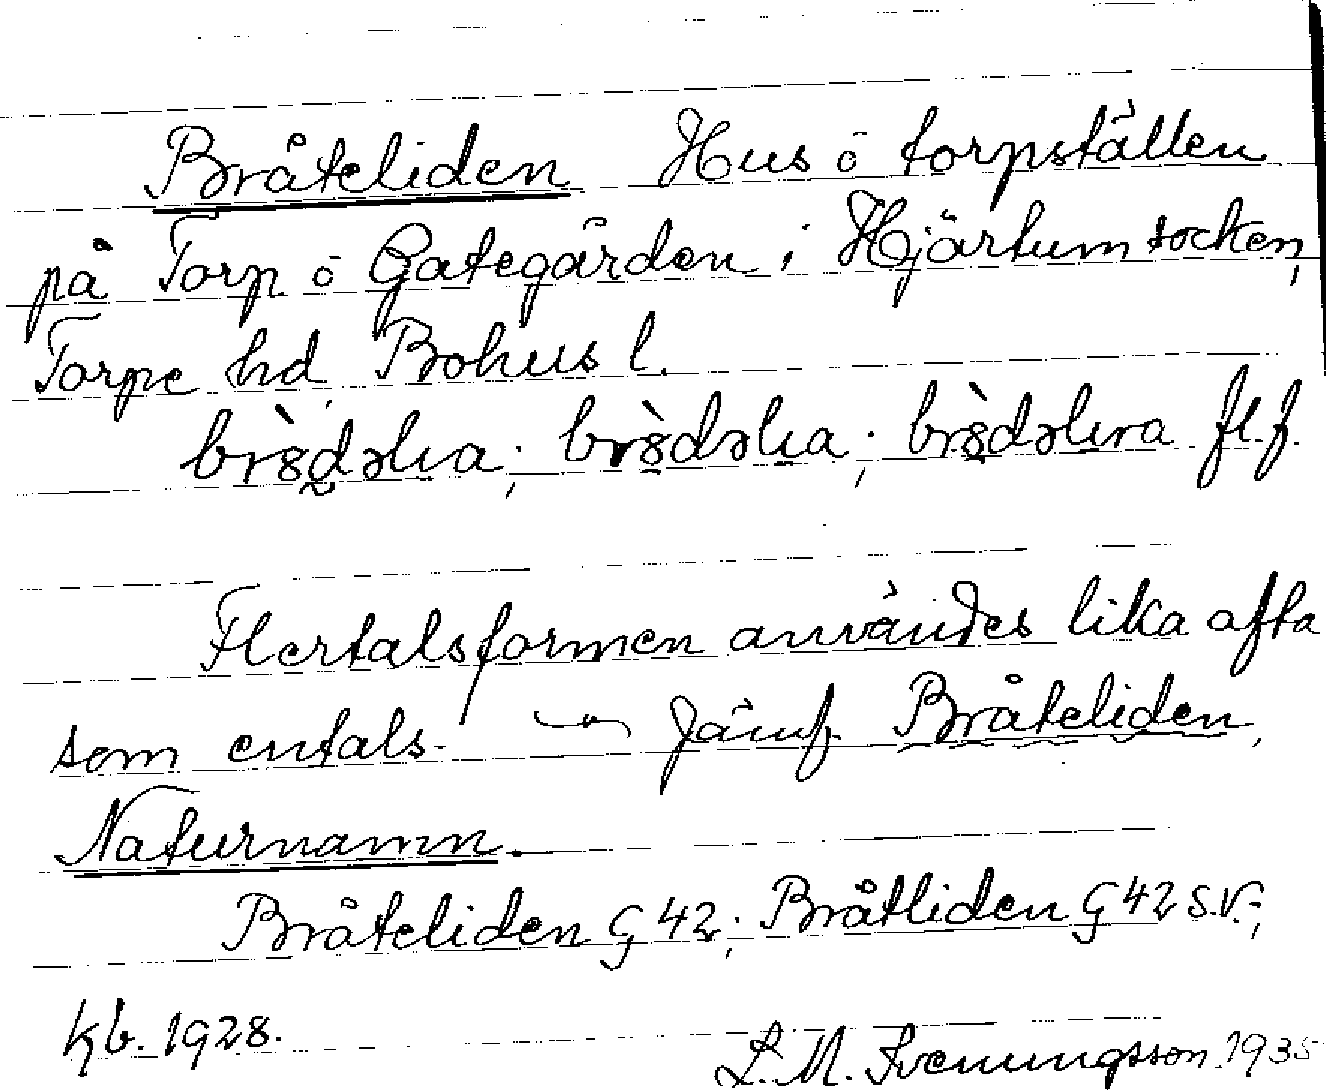 Bråteliden Hus ö torpställen
på Torp ö Gategården i Hjärtum socken,
Torpe hd Bohus l.
fl.f.
Flertalsformen användes lika ofta
som entals- Jämf. Bråteliden,
Naturnamn.
Bråteliden G 42; Bråtliden G 42 S.V.;
kb. 1928.
L. M. Svenungsson 1935